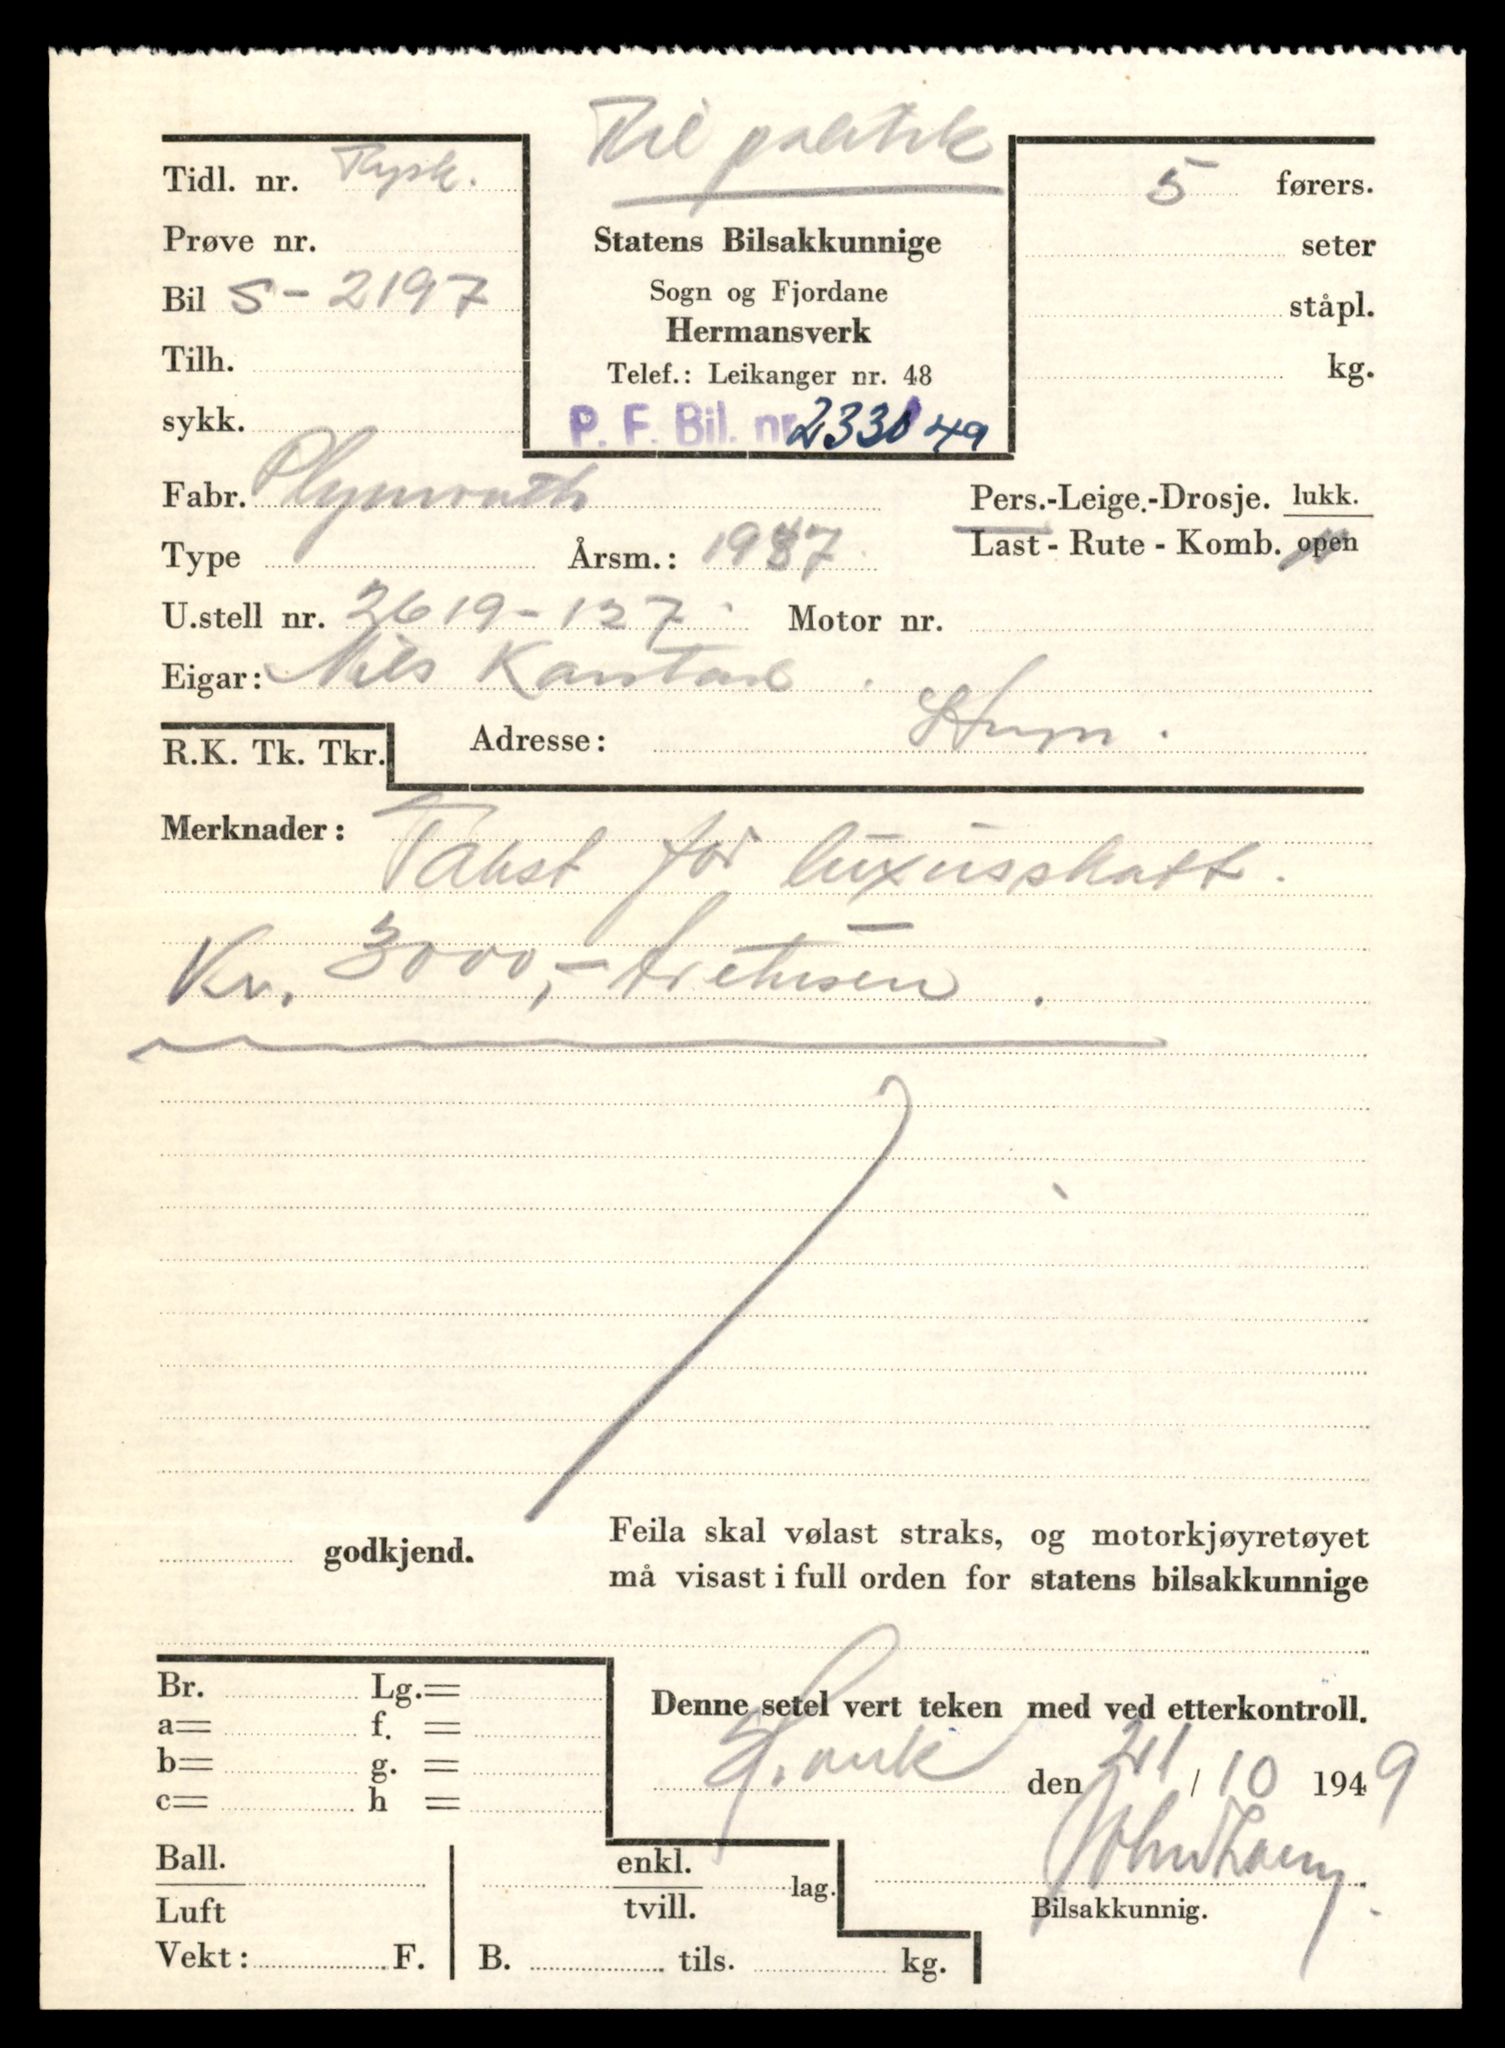 Tidl. nr. Tysk.
Prøve nr.
Bil S-2197
Tilh.
sykk.
Til
Statens Bilsakkunnige
Sogn og Fjordane
Hermansverk
Telef.: Leikanger nr. 48
P. F. Bil. nr 2330 49
5 førers.
seter
ståpl.
kg.
Fabr. Plymouth
Type Årsm.: 1937
Pers.-Leige.-Drosje. lukk.
Last - Rute - Komb. open
U.stell nr. 2619-127 Motor nr.
Eigar: Nils
R.K. Tk. Tkr. Adresse:
Merknader: Takst for luxusskatt.
Kr. 3000,- tretusen.
godkjend.
Feila skal vølast straks, og motorkjøyretøyet
må visast i full orden for statens bilsakkunnige
Br. Lg.=
a= f. =
b= g. =
c= h =
Denne setel vert teken med ved etterkontroll.
den 21/10 1949
Ball.
Luft
enkl.
tvill.
lag.
Bilsakkunnig.
Vekt: F. B. tils. kg.